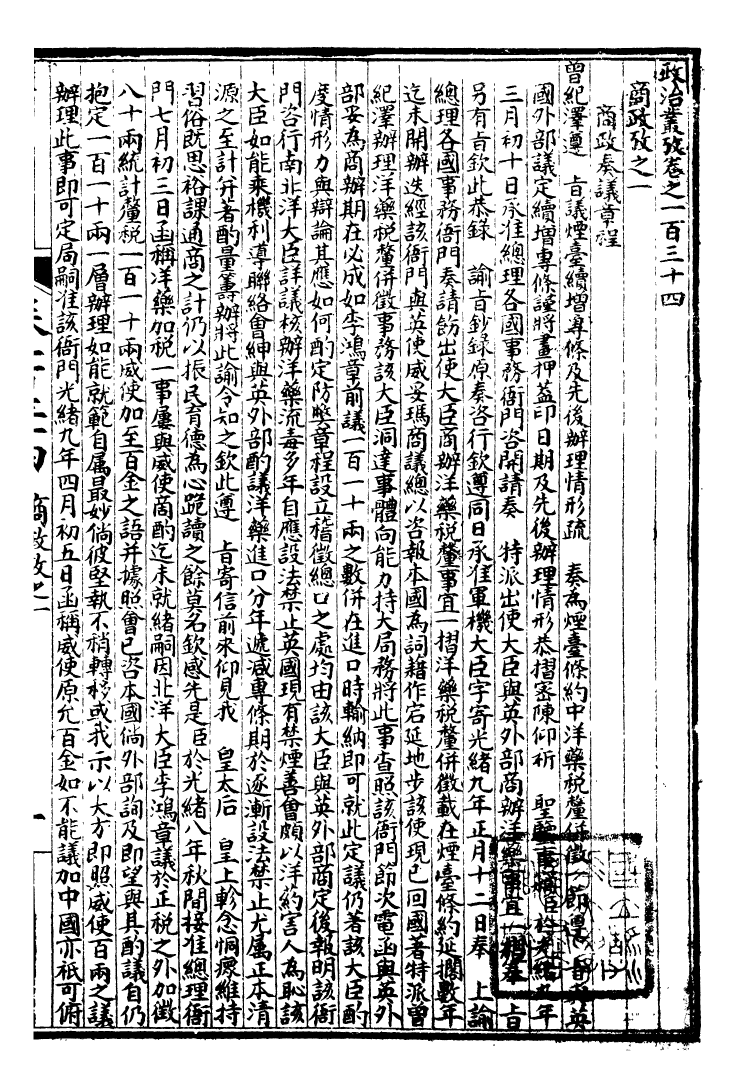 政治叢攷卷之一百三十四
商政攷之一
商政奏議章程
曾紀澤遵　旨議煙臺續增專條及先後辦理情形疏　奏為煙臺條約中洋藥稅釐併徵一節遵　旨與英
國外部議定續增專條謹將畫押蓋印日期及先後辦理情形恭摺密陳仰祈　聖鑒事竊臣於光緒九年
三月初十日承准總理各國事務衙門咨開請奏　特派出使大臣與英外部商辦洋藥事宜一摺奉　旨
另有旨欽此恭錄　諭旨鈔錄原奏洛行欽遵同日承准軍機大臣字寄光緒九年正月十二日奉　上諭
總理各國事務衙門奏請飭出使大臣商辦洋藥稅釐事宜一摺洋藥稅釐併徵載在煙臺條約延擱數年
迄未開辦迭經該衙門與英使威妥瑪商議總以咨報本國為詞藉作宕延地步該使現已回國著特派曾
紀澤辦理洋藥稅釐併徵事務該大臣洞達事體向能力持大局務將此事查照該衙門節次電函與英外
部妥為商辦期在必成如李鴻章前議一百一十兩之數併在進口時輸納即可就此定議仍著該大臣酌
度情形力與辯論其應如何酌定防弊章程設立稽徵總口之處均由該大臣與英外部商定後報明該衙
門咨行南北洋大臣詳議核辦洋藥流毒多年自應設法禁止英國現有禁煙善會頗以洋約害人為恥該
大臣如能乘機利導聯絡會紳與英外部酌議洋藥進口分年遞減專條期於逐漸設法禁止尤屬正本清
源之至計并著酌量籌辦將此諭令知之欽此遵　旨寄信前來仰見我　皇太后　皇上軫念恫瘝維持
習俗既思裕課通商之計仍以振民育德為心跪讀之餘莫名欽感先是臣於光緒八年秋間接准總理衙
門七月初三日函稱洋藥加稅一事屢與威使商酌迄未就緒嗣因北洋大臣李鴻章議於正稅之外加徵
八十兩統計釐稅一百一十兩威使加至百金之語并據照會已咨本國倘外部詢及即望與其酌議自仍
抱定一百一十兩一層辦理如能就範自屬最妙倘彼堅執不稍轉移或我示以大方即照威使百兩之議
辦理此事即可定局嗣准該衙門光緒九年四月初五日函稱威使原允百金如不能議加中國亦祗可俯
商政攷之一
一